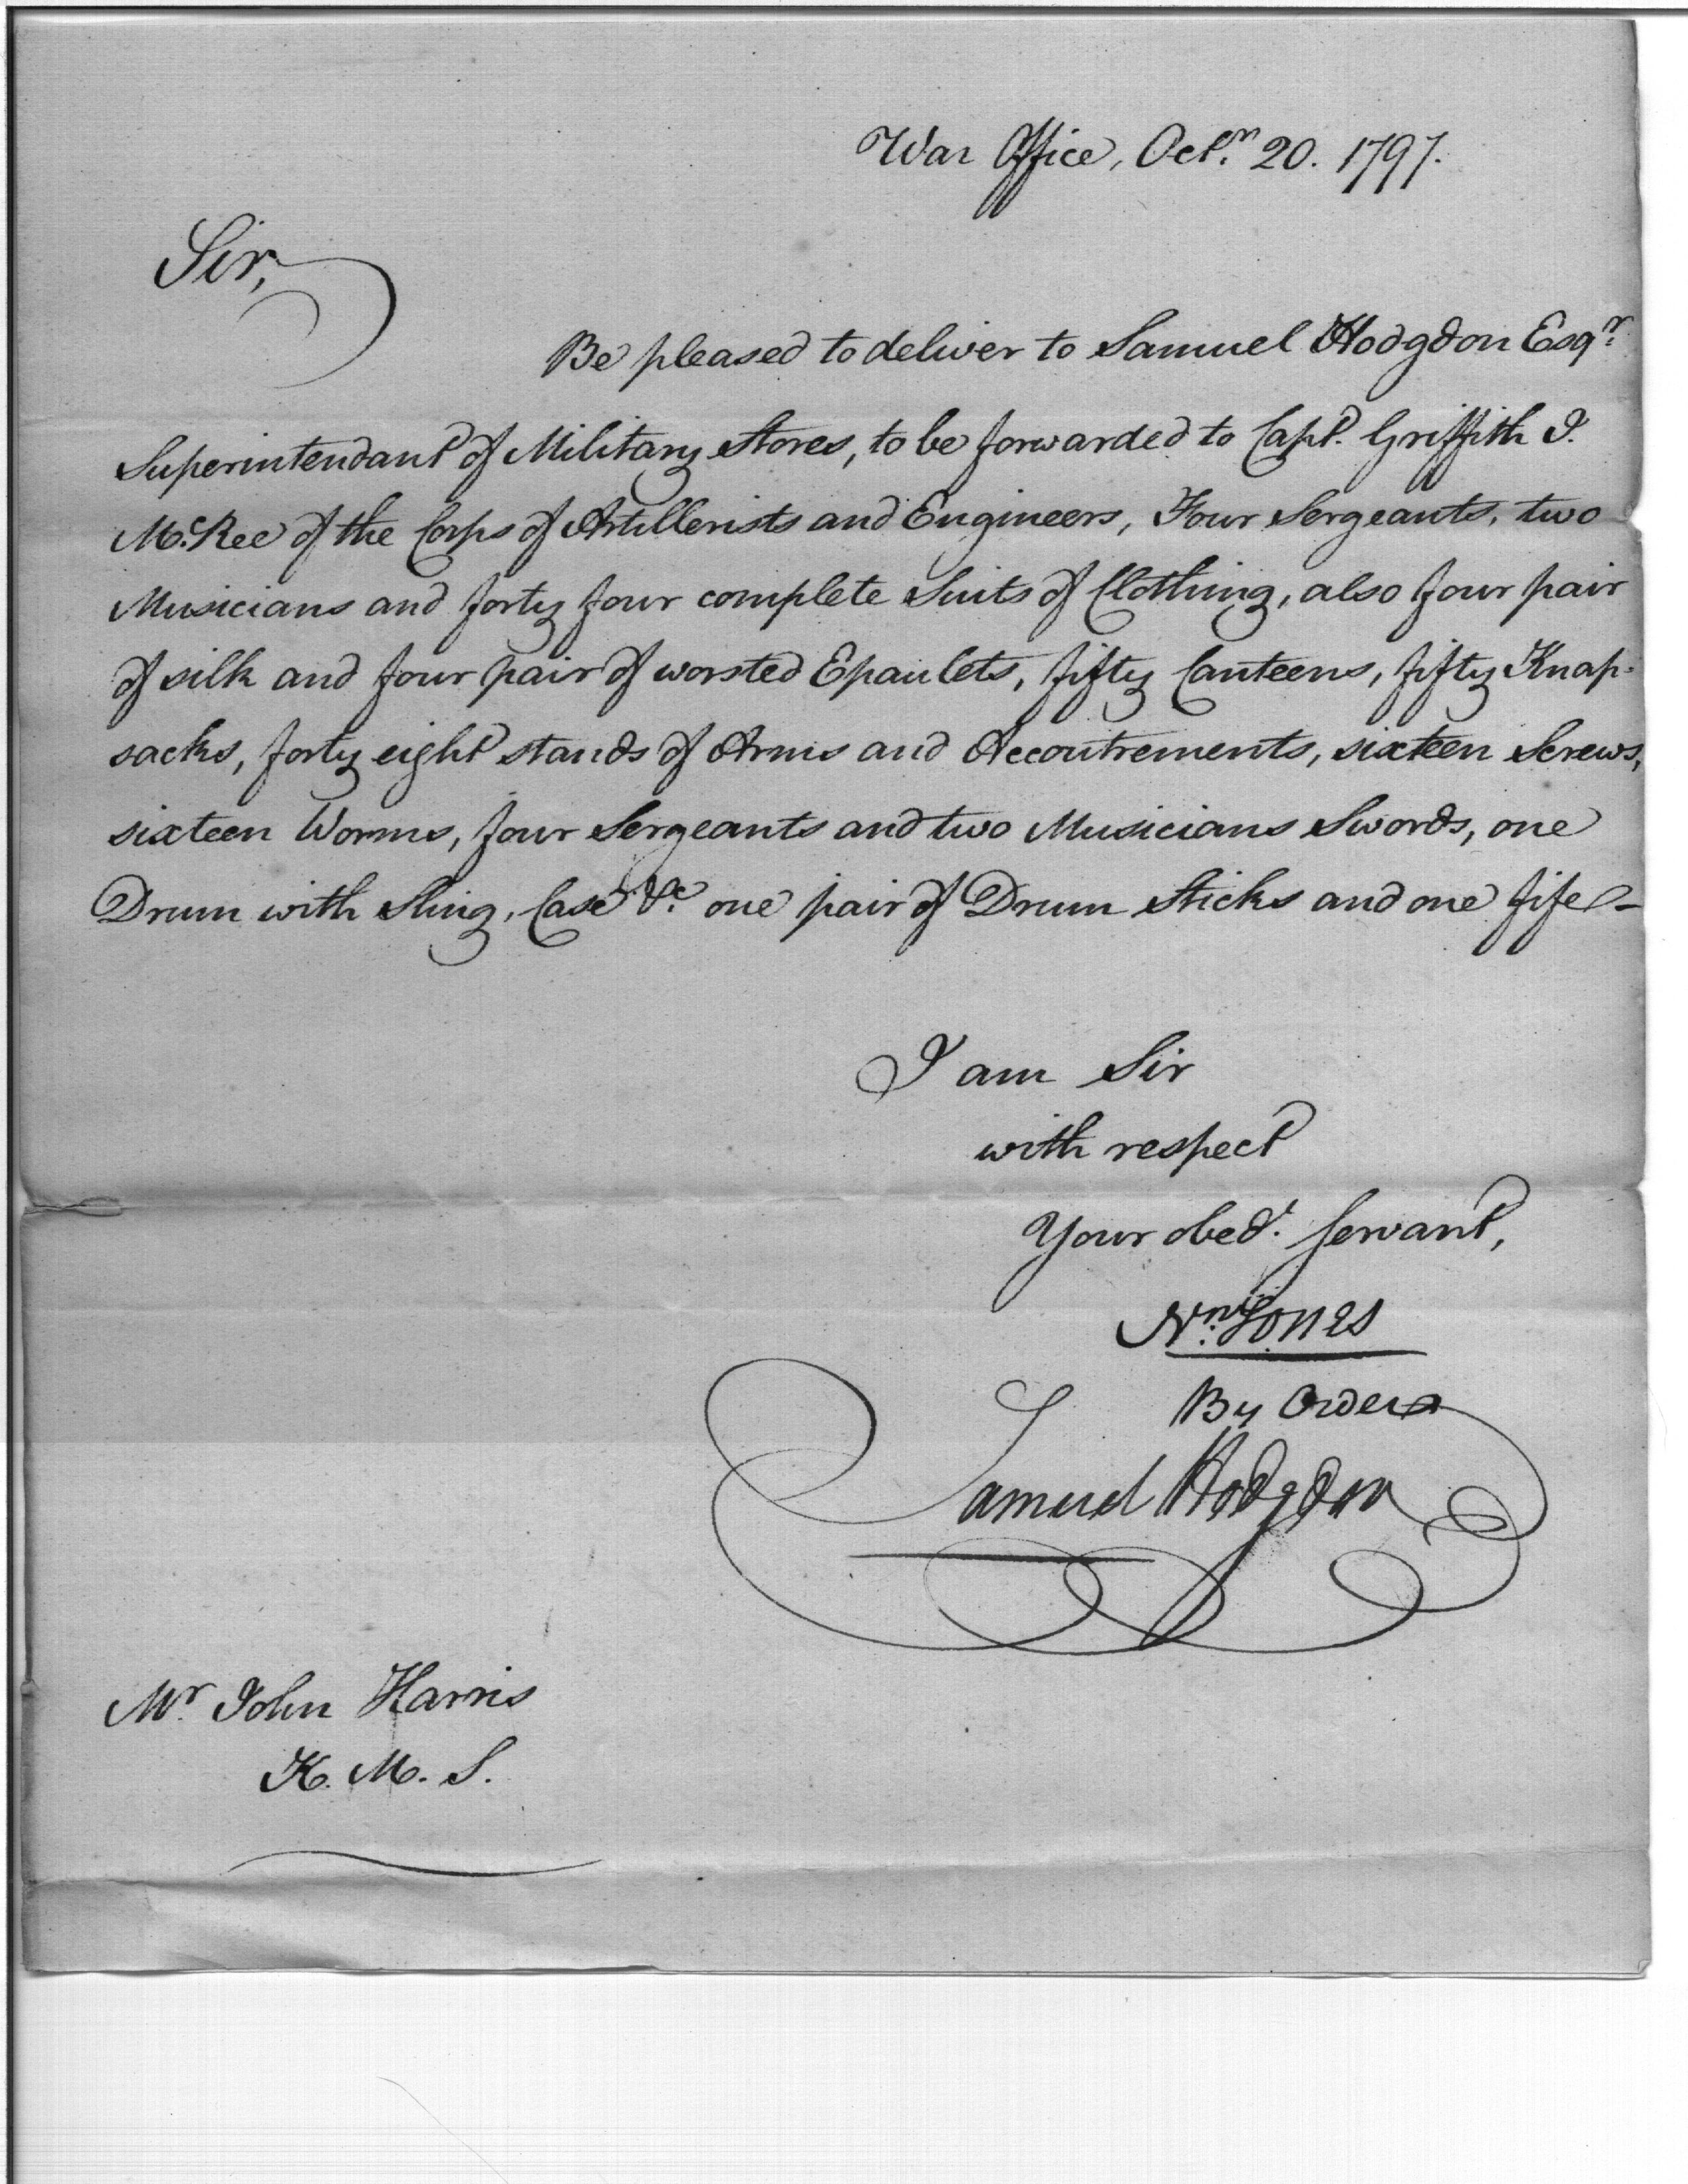 War Office, Octr. 20. 1797.
Sir,
Be pleased to deliver to Samuel Hodgdon Esqr.
Superintendant of Military Stores, to be forwarded to Capt. Griffith I.
Mc.Ree of the Corps of Artillerists and Engineers, Four Sergeants, two
Musicians and forty four complete Suits of Clothing, also four pair
of silk and four pair of worsted Epaulets, fifty Canteens, fifty Knap-
sacks, forty eight stands of Arms and Accoutrements, sixteen Screws,
sixteen Worms, four Sergeants and two Musicians Swords, one
Drum with Sling, Case &c. one pair of Drum Sticks and one fife—
I am Sir
with respect
Your obedt. servant,
Nn. Jones
By Order
Samuel Hodgdon
Mr. John Harris
K. M. S.